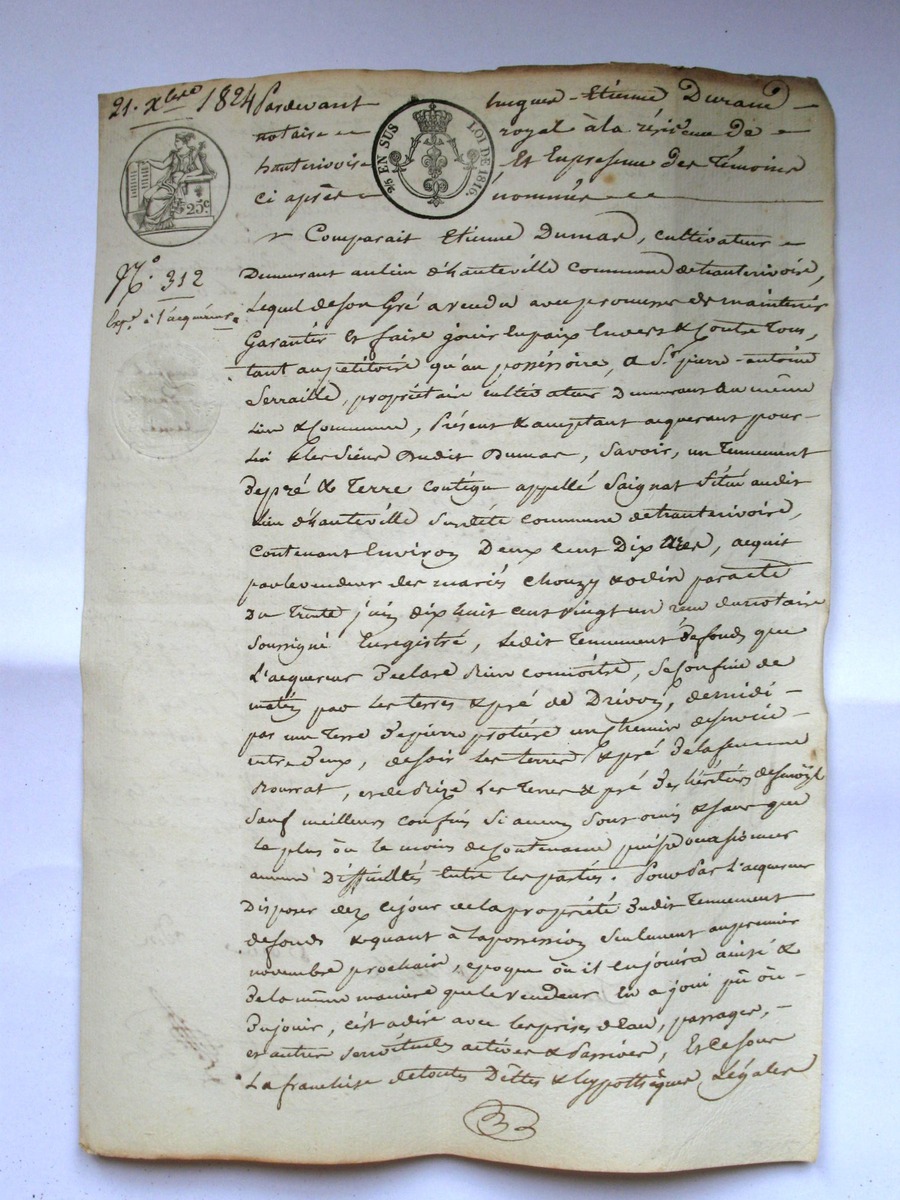 21. Xbre 1824 Pardevant hugues-Etienne Durand
notaire royal à la résidence de
hauterivoire Et En presence des témoins
ci après nommés
25 EN SUS
LOI DE 1816.
25c
Comparait Etienne Dumas, cultivateur
N.o 312
Demeurant au lieu d'hauteville commune de hauterivoire,
Lequel de son Gré a vendu avec promesse de maintenir
Exp.n à l'acquéreur
Garantir Et faire jouir En paix Envers & Contre Tous,
tant au petitoire qu'au possessoire, a S.r pierre-antoine
Serraille, propriétaire cultivateur Demeurant Au même
Lieu & Commune, Présent & acceptant acquerant pour
Lui & les Siens Dudit Dumas, Savoir, un tennement
De pré & Terre contigu appellé Saignat Situé audit
Lieu d'hauteville Susdite commune de hauterivoire,
Contenant Environ Deux cent Dix Ares, acquit
par le vendeur des mariés Chouzy & odin par acte
Du trente juin dix huit cent vingt un reçu du notaire
Soussigné Enregistré, Ledit Tennement De fonds que
L'acquereur Declare Bien connoître, Se Confine de
matin par les terres & pré de Drivon, de midi
par une Terre De pierre protière un chemin de service
entre Deux, de soir les terres & pré De la femme
Bourrat, et de Bize Les Terres & pré Des héritiers
Sauf meilleurs confins Si aucuns Sont omis & sans que
le plus ou le moins de Contenance puisse occasionner
aucune Difficultés Entre les parties. Pour Par L'acquereur
Disposer dez Ce jour de la propriété Dudit Tennement
de fonds & quant à la possession Seulement au premier
novembre prochain, epoque où il en jouira ainsi &
De la même maniere que le vendeur En a joui pû ou
Du jouir, C'est adire avec les prises d'Eau, passages,
et autres Servitudes actives & Passives, Et Ce Sous
La franchise de toutes Dettes & hypothèques Légales